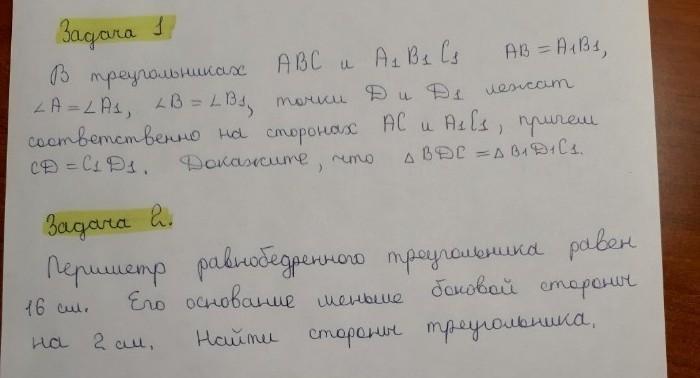 Задача 1
В треугольниках ABC и A1 B1 C1 AB = A1B1,
∠A = ∠A1, ∠B = ∠B1, точки D и D1 лежат
соответственно на сторонах AC и A1C1, причем
CD = C1D1. Докажите, что △ BDC = △ B1D1C1.
Задача 2.
Периметр равнобедренного треугольника равен
16 см. Его основание меньше боковой стороны
на 2 см. Найти стороны треугольника.